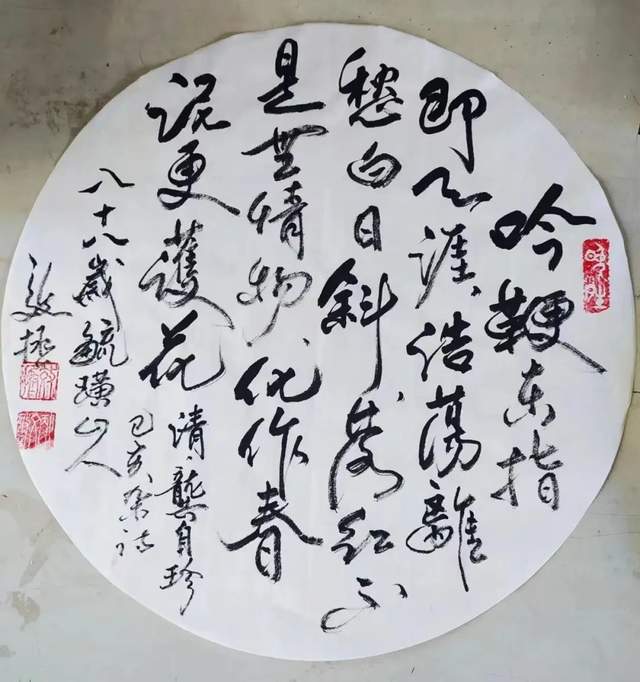 吟鞭东指
即天涯浩蕩離
愁白日斜落红不
是無情物化作春
泥更護花
清龔自珍
己亥杂诗
八十八歲毓璜山人